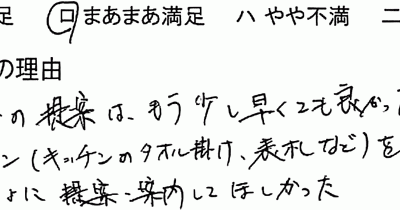 足 ロ まあまあ満足 ハ やや不満 ニ
の理由
の 提案は、もう少し早くても良かっ
ン(キッチンのタオル掛け、表札など)を
ょに 提案・案内してほしかった